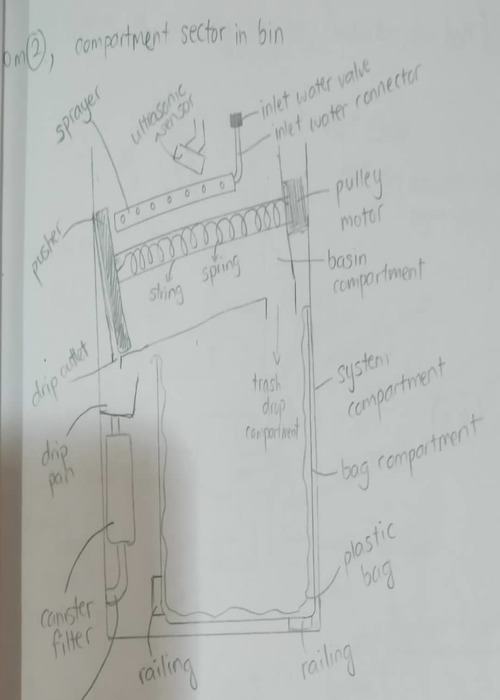 om ②, compartment sector in bin
sprayer
ultrasonic
sensor
inlet water valve
inlet water connector
pusher
pulley
motor
string
spring
basin
compartment
drip outlet
trash
drop
compartment
system
compartment
drip
pan
bag compartment
plastic
bag
canister
filter
railing
railing